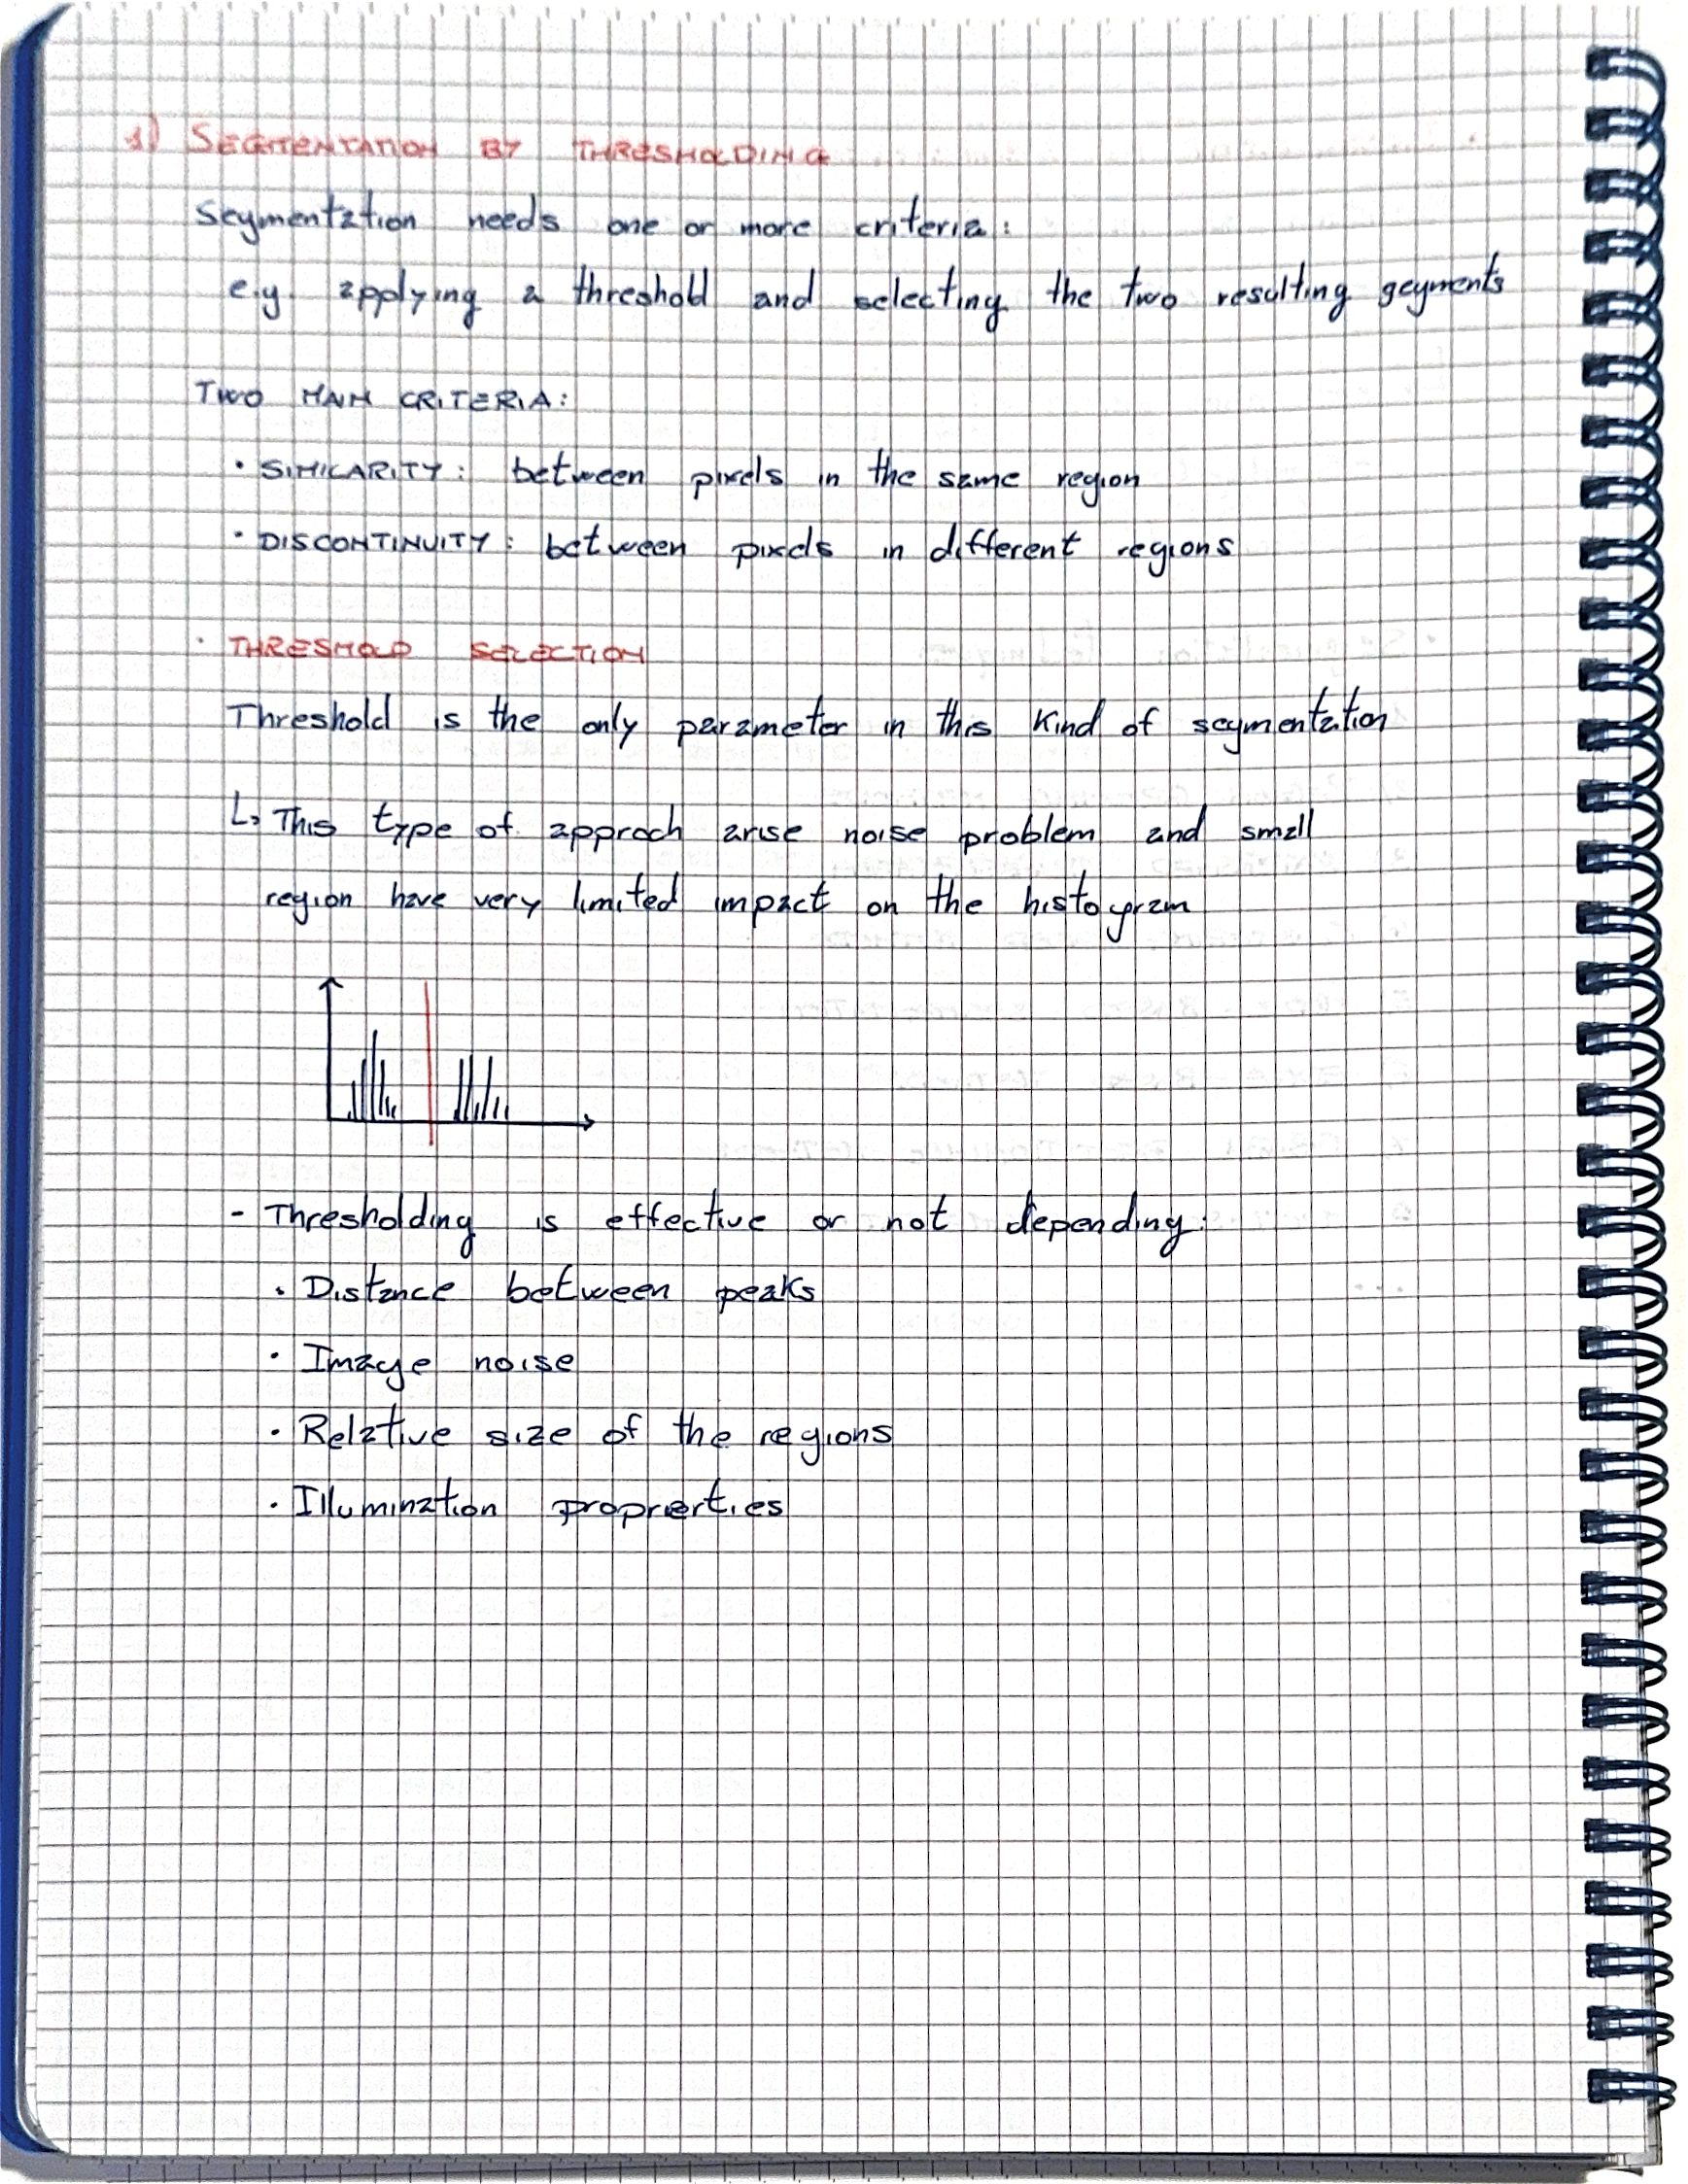 1) SEGMENTATION BY THRESHOLDING
Segmentation needs one or more criteria:
e.g. applying a threshold and selecting the two resulting segments
TWO MAIN CRITERIA:
• SIMILARITY: between pixels in the same region
• DISCONTINUITY: between pixels in different regions
• THRESHOLD SELECTION
Threshold is the only parameter in this kind of segmentation
↳ This type of approch arise noise problem and small
region have very limited impact on the histogram
- Thresholding is effective or not depending:
• Distance between peaks
• Image noise
• Relative size of the regions
• Illumination proprerties